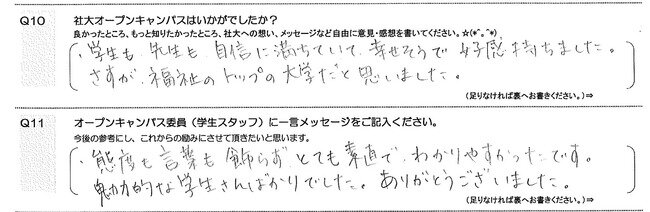 Q10 社大オープンキャンパスはいかがでしたか？
良かったところ、もっと知りたかったところ、社大への想い、メッセージなど自由に意見・感想を書いてください。☆(*^_^*)
・学生も 先生も 自信に満ちていて、幸せそうで 好感持ちました。
さすが、福祉のトップの大学だと思いました。
(足りなければ裏へお書きください。)⇒
Q11 オープンキャンパス委員（学生スタッフ）に一言メッセージをご記入ください。
今後の参考にし、これからの励みにさせて頂きたいと思います。
・態度も言葉も飾らず とても素直で、わかりやすかったです。
魅力的な学生さんばかりでした。ありがとうございました。
(足りなければ裏へお書きください。)⇒